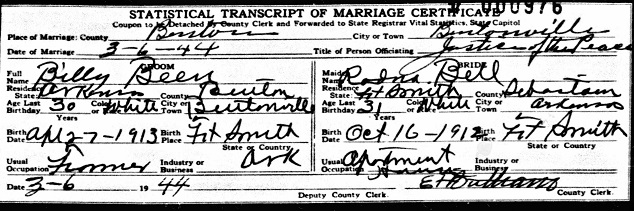 STATISTICAL TRANSCRIPT OF MARRIAGE CERTIFICATE
No 000976
Coupon to be Detached by County Clerk and Forwarded to State Registrar Vital Statistics, State Capitol
Place of Marriage: County Benton City or Town Bentonville
Date of Marriage 3-6-44 Title of Person Officiating Justice of the Peace
GROOM BRIDE
Full Name Billy Maiden Name Bell
Residence State: Arkansas County Benton Residence State: Ft Smith County Sebastian
Age Last Birthday 30 Years Color White City or Town Bentonville Age Last Birthday 31 Years Color White City or Arkansas
Birth Date Apr 27-1913 Birth Place Ft Smith Birth Date Oct 16-1912 Birth Place Ft Smith
State or Country Ark State or Country
Usual Occupation Farmer Industry or Business Usual Occupation Apartment House Industry or Business
Date 3-6 1944 Deputy County Clerk. County Clerk.